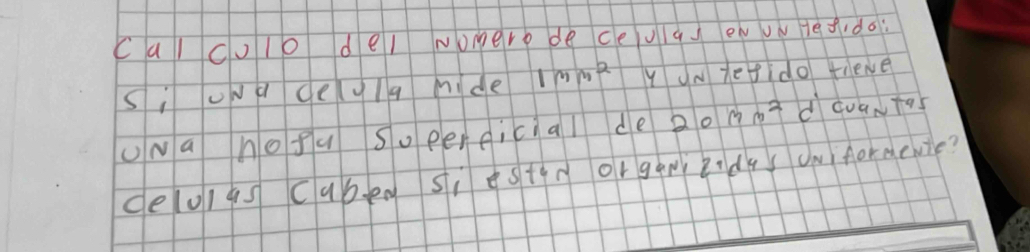 Calculo del Numero de celulas en un tejido:
Si una celula mide 1mm² y un tejido tiene
una hoja superficial de 20mm² d cuantas
celulas caben si estan organizadas uniformente?